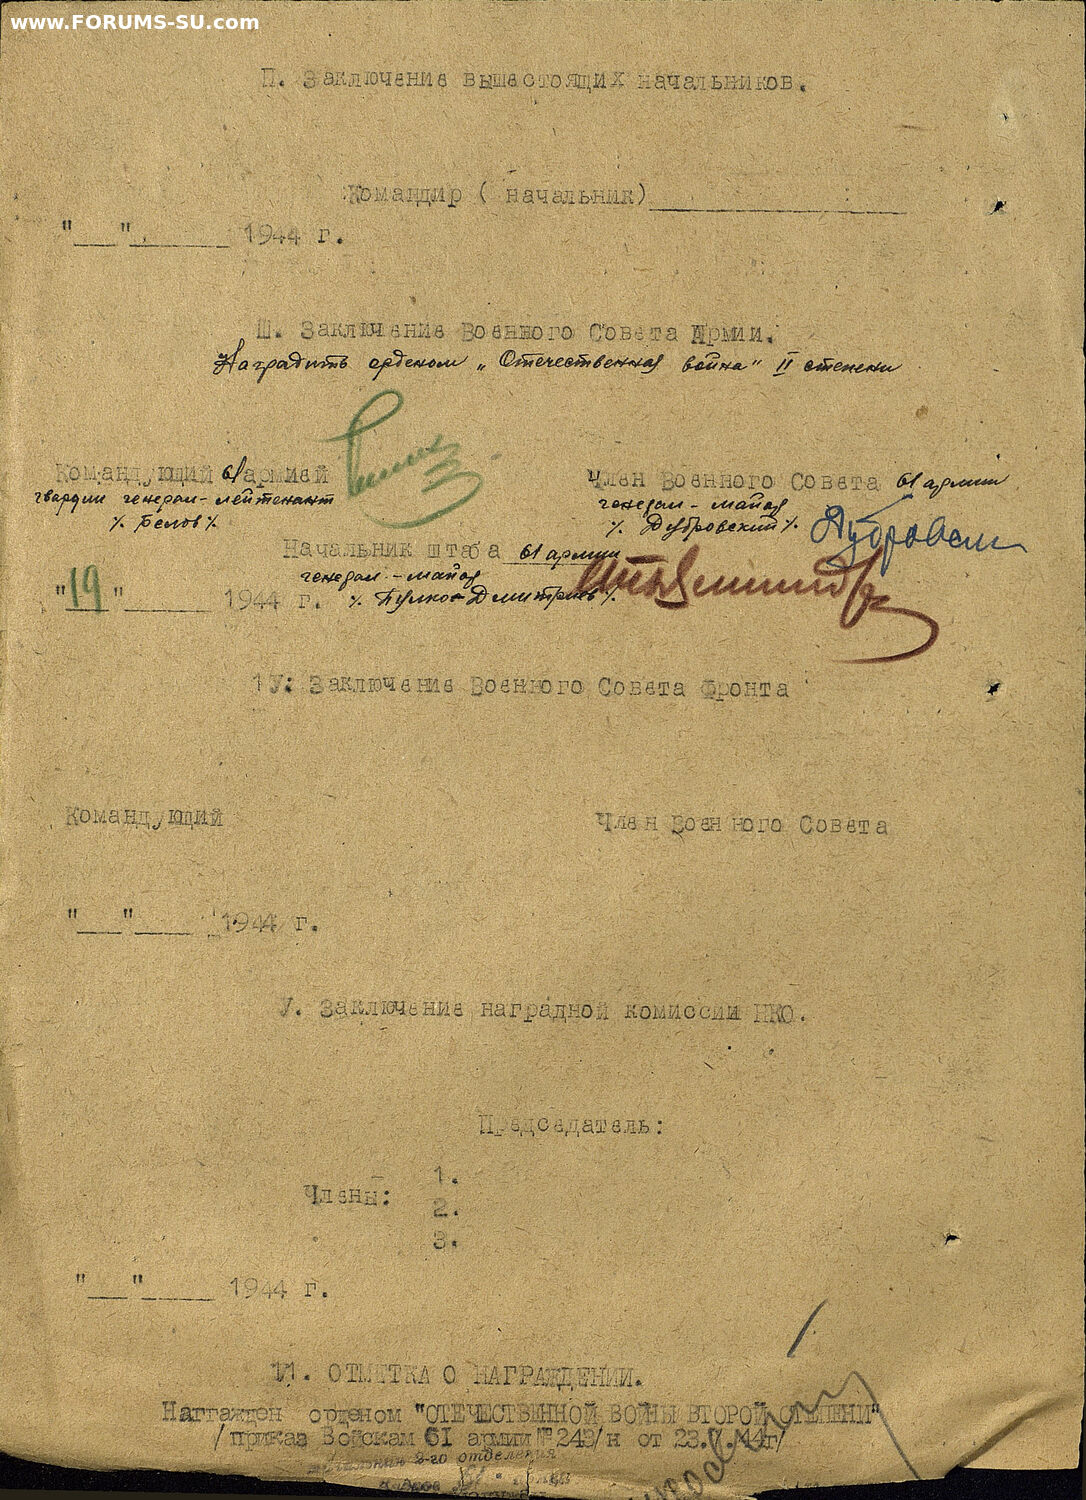 www.FORUMS-SU.com
П. Заключение вышестоящих начальников.
Командир ( начальник)____________
"___"._______ 1944 г.
Ш. Заключение Военного Совета Армии.
Наградить орденом „Отечественная война" II степени
Командующий 61 армией
гвардии генерал-лейтенант
٪ Белов ٪
Член Военного Совета 61 армии
генерал-майор
٪ Дубровский ٪
Дубровский
Начальник штаба 61 армии
генерал-майор
"19"_______ 1944 г. ٪ Пулко-Дмитриев ٪
1У: Заключение Военного Совета фронта
Командующий
Член Военного Совета
"___"____ 1944 г.
У. Заключение наградной комиссии НКО.
Председатель:
Члены:
1.
2.
3.
"___"_____ 1944 г.
У1. ОТМЕТКА О НАГРАЖДЕНИИ.
Награжден орденом "ОТЕЧЕСТВЕННОЙ ВОЙНЫ ВТОРОЙ СТЕПЕНИ"
/приказ Войскам 61 армии № 243/н от 23.7.44г/
2-го отделения